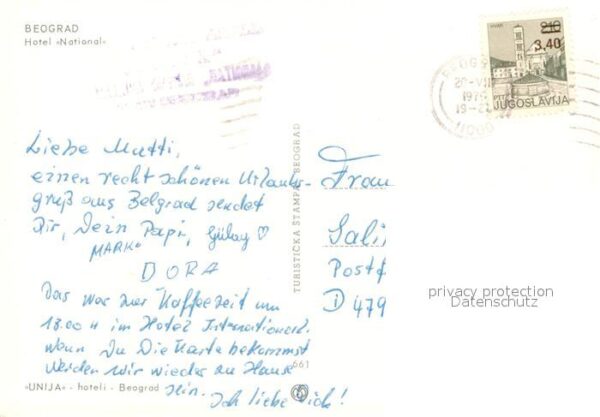 BEOGRAD
Hotel »National«
NATIONAL
HVAR
2.10
3,40
PTT JUGOSLAVIJA
BEOGRAD
19
11000
Liebe Mutti,
einen recht schönen Urlaubs-
gruß aus Belgrad sendet
Dir, Dein Papi, Gülay ♡
MARK
DORA
Das war zur Kaffeezeit um
18.00 H im Hotel International.
Wenn Du Die Karte bekommst
werden wir wieder zu Hause
sein. Ich liebe Dich!
661
»UNIJA« - hoteli - Beograd
TURISTIČKA ŠTAMPA BEOGRAD
Frau
Sali
Postf
D 479
privacy protection
Datenschutz